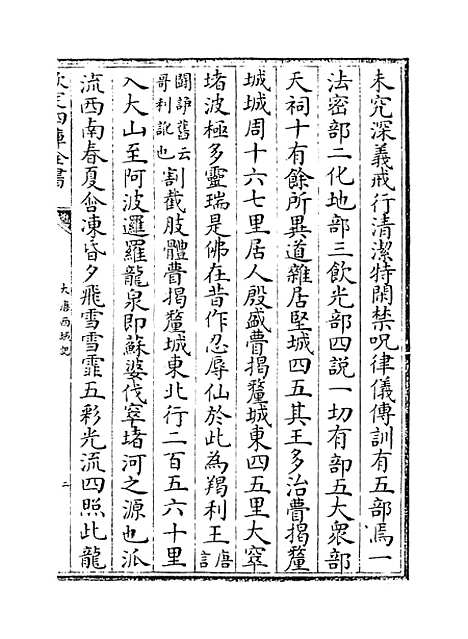 未究深義戒行清潔特閑禁呪律儀傳訓有五部焉一
法密部二化地部三飲光部四說一切有部五大衆部
天祠十有餘所異道雜居堅城四五其王多治瞢揭釐
城城周十六七里居人殷盛瞢揭釐城東四五里大窣
堵波極多靈瑞是佛在昔作忍辱仙於此為羯利王唐言
鬬諍舊云哥利訛也割截肢體瞢揭釐城東北行二百五六十里
入大山至阿波邏羅龍泉即蘇婆伐窣堵河之源也派
流西南春夏含凍昏夕飛雪雪霏五彩光流四照此龍
欽定四庫全書
大唐西域記
二